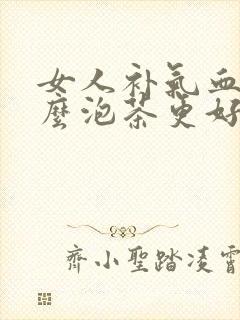 女人补氣血
麼泡茶更好
齊小聖踏凌霄